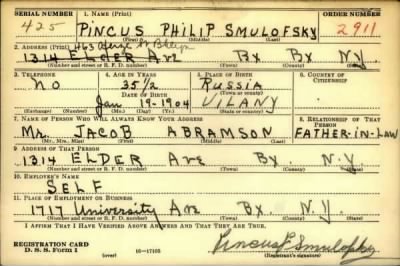 SERIAL NUMBER 1. NAME (Print) ORDER NUMBER
425 PINCUS PHILIP SMULOFSKY 2911
(First) (Middle) (Last)
2. ADDRESS (Print)
1314 ELDER Ave Bx Bx N.Y.
(Number and street or R. F. D. number) (Town) (County) (State)
3. TELEPHONE 4. AGE IN YEARS 5. PLACE OF BIRTH 6. COUNTRY OF CITIZENSHIP
NO 35½ RUSSIA
DATE OF BIRTH (Town or county)
Jan 19-1904 VILANY
(Exchange) (Number) (Mo.) (Day) (Yr.) (State or country)
7. NAME OF PERSON WHO WILL ALWAYS KNOW YOUR ADDRESS 8. RELATIONSHIP OF THAT PERSON
Mr. JACOB ABRAMSON FATHER-IN-LAW
(Mr., Mrs., Miss) (First) (Middle) (Last)
9. ADDRESS OF THAT PERSON
1314 ELDER Ave Bx. N.Y
(Number and street or R. F. D. number) (Town) (County) (State)
10. EMPLOYER'S NAME
SELF
11. PLACE OF EMPLOYMENT OR BUSINESS
1717 University Ave Bx. N.Y.
(Number and street or R. F. D. number) (Town) (County) (State)
I AFFIRM THAT I HAVE VERIFIED ABOVE ANSWERS AND THAT THEY ARE TRUE.
REGISTRATION CARD
D. S. S. Form 1 (over) 16-17105 Pincus P Smulofsky
(Registrant's signature)